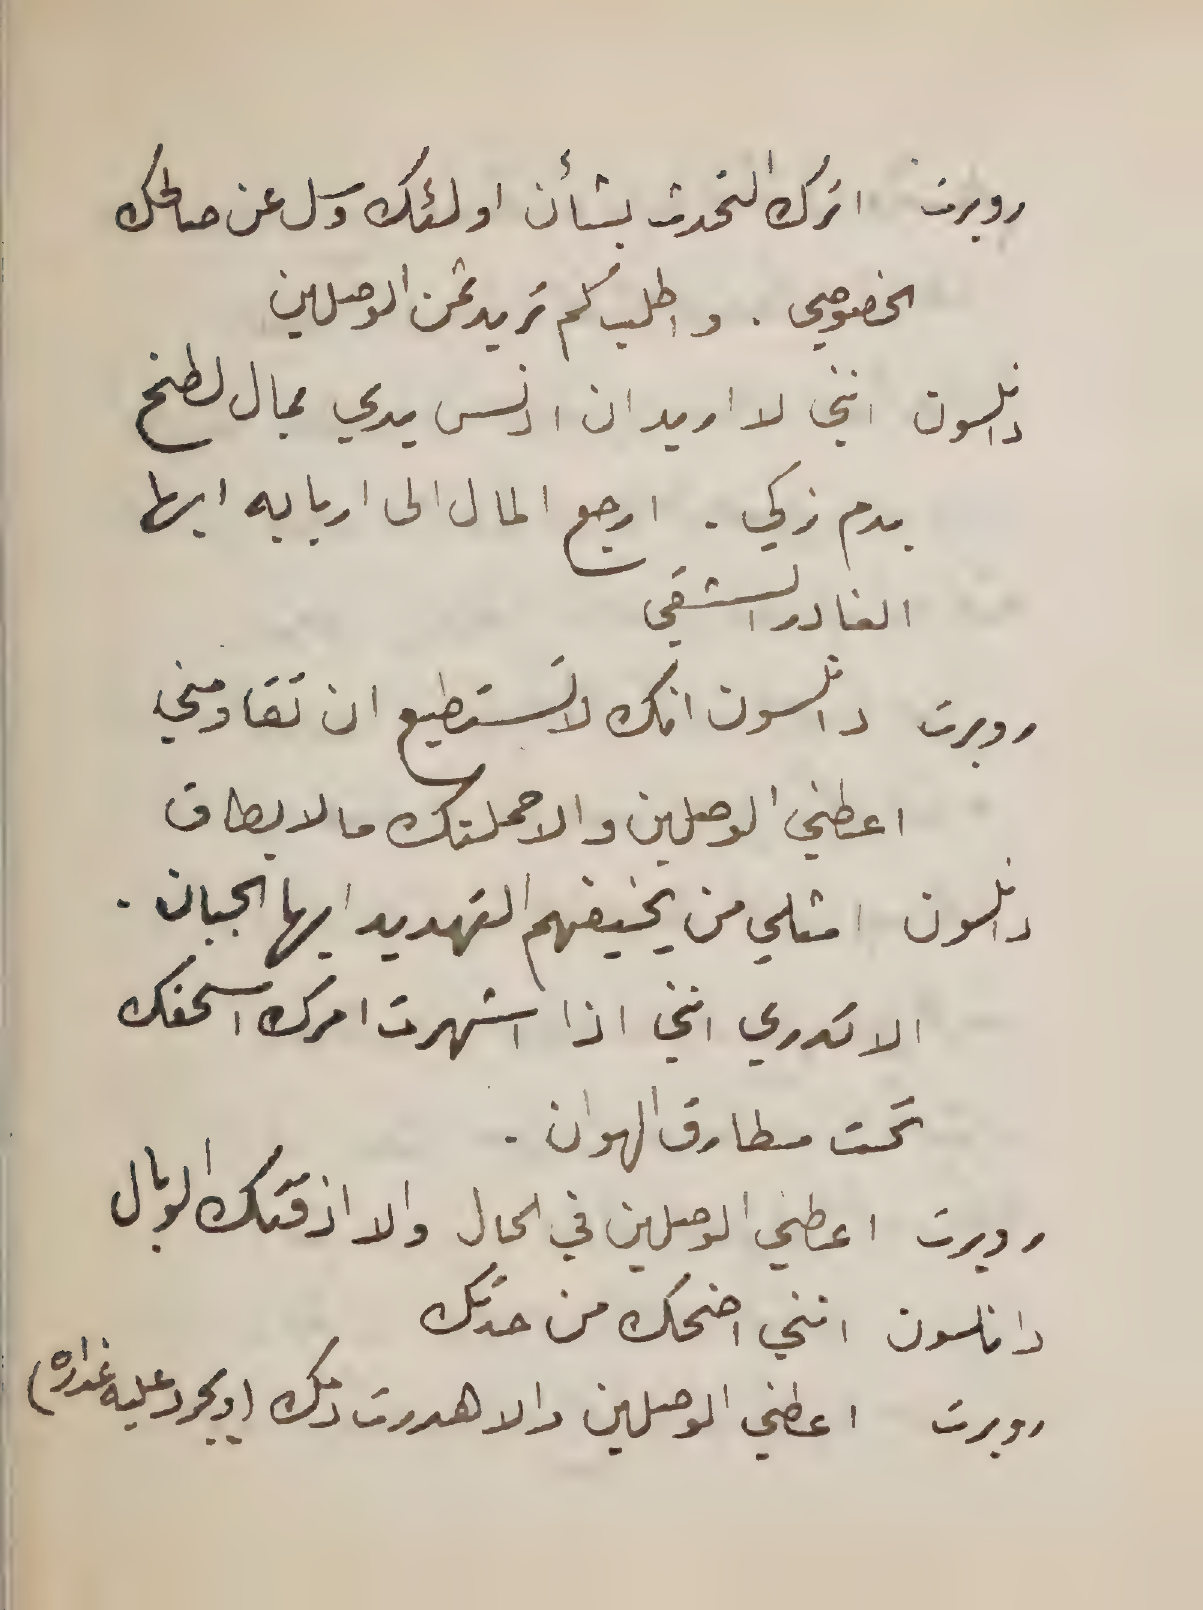 روبرت اترك التحدث بشأن اولئك وسل عن صالحك
الخصوصي . واطلب كم تريد ثمن الوصلين
دانلسون انني لا اريد ان ادنس يدي بمال لطخ
بدم زكي . ارجع المال الى اربابه ايها
الغادر الشقي
روبرت دانلسون انك لا تستطيع ان تقاومني
اعطني الوصلين والا حملتك ما لا يطاق
دانلسون امثلي من يخيفهم التهديد ايها الجبان .
الا تدري انني اذا اشهرت امرك اسحقك
تحت مطارق الهوان .
روبرت اعطني الوصلين في الحال والا اذقتك الوبال
دانلسون انني اضحك من حدتك
روبرت اعطني الوصلين والا هدرت دمك (ويجرد عليه غداره)